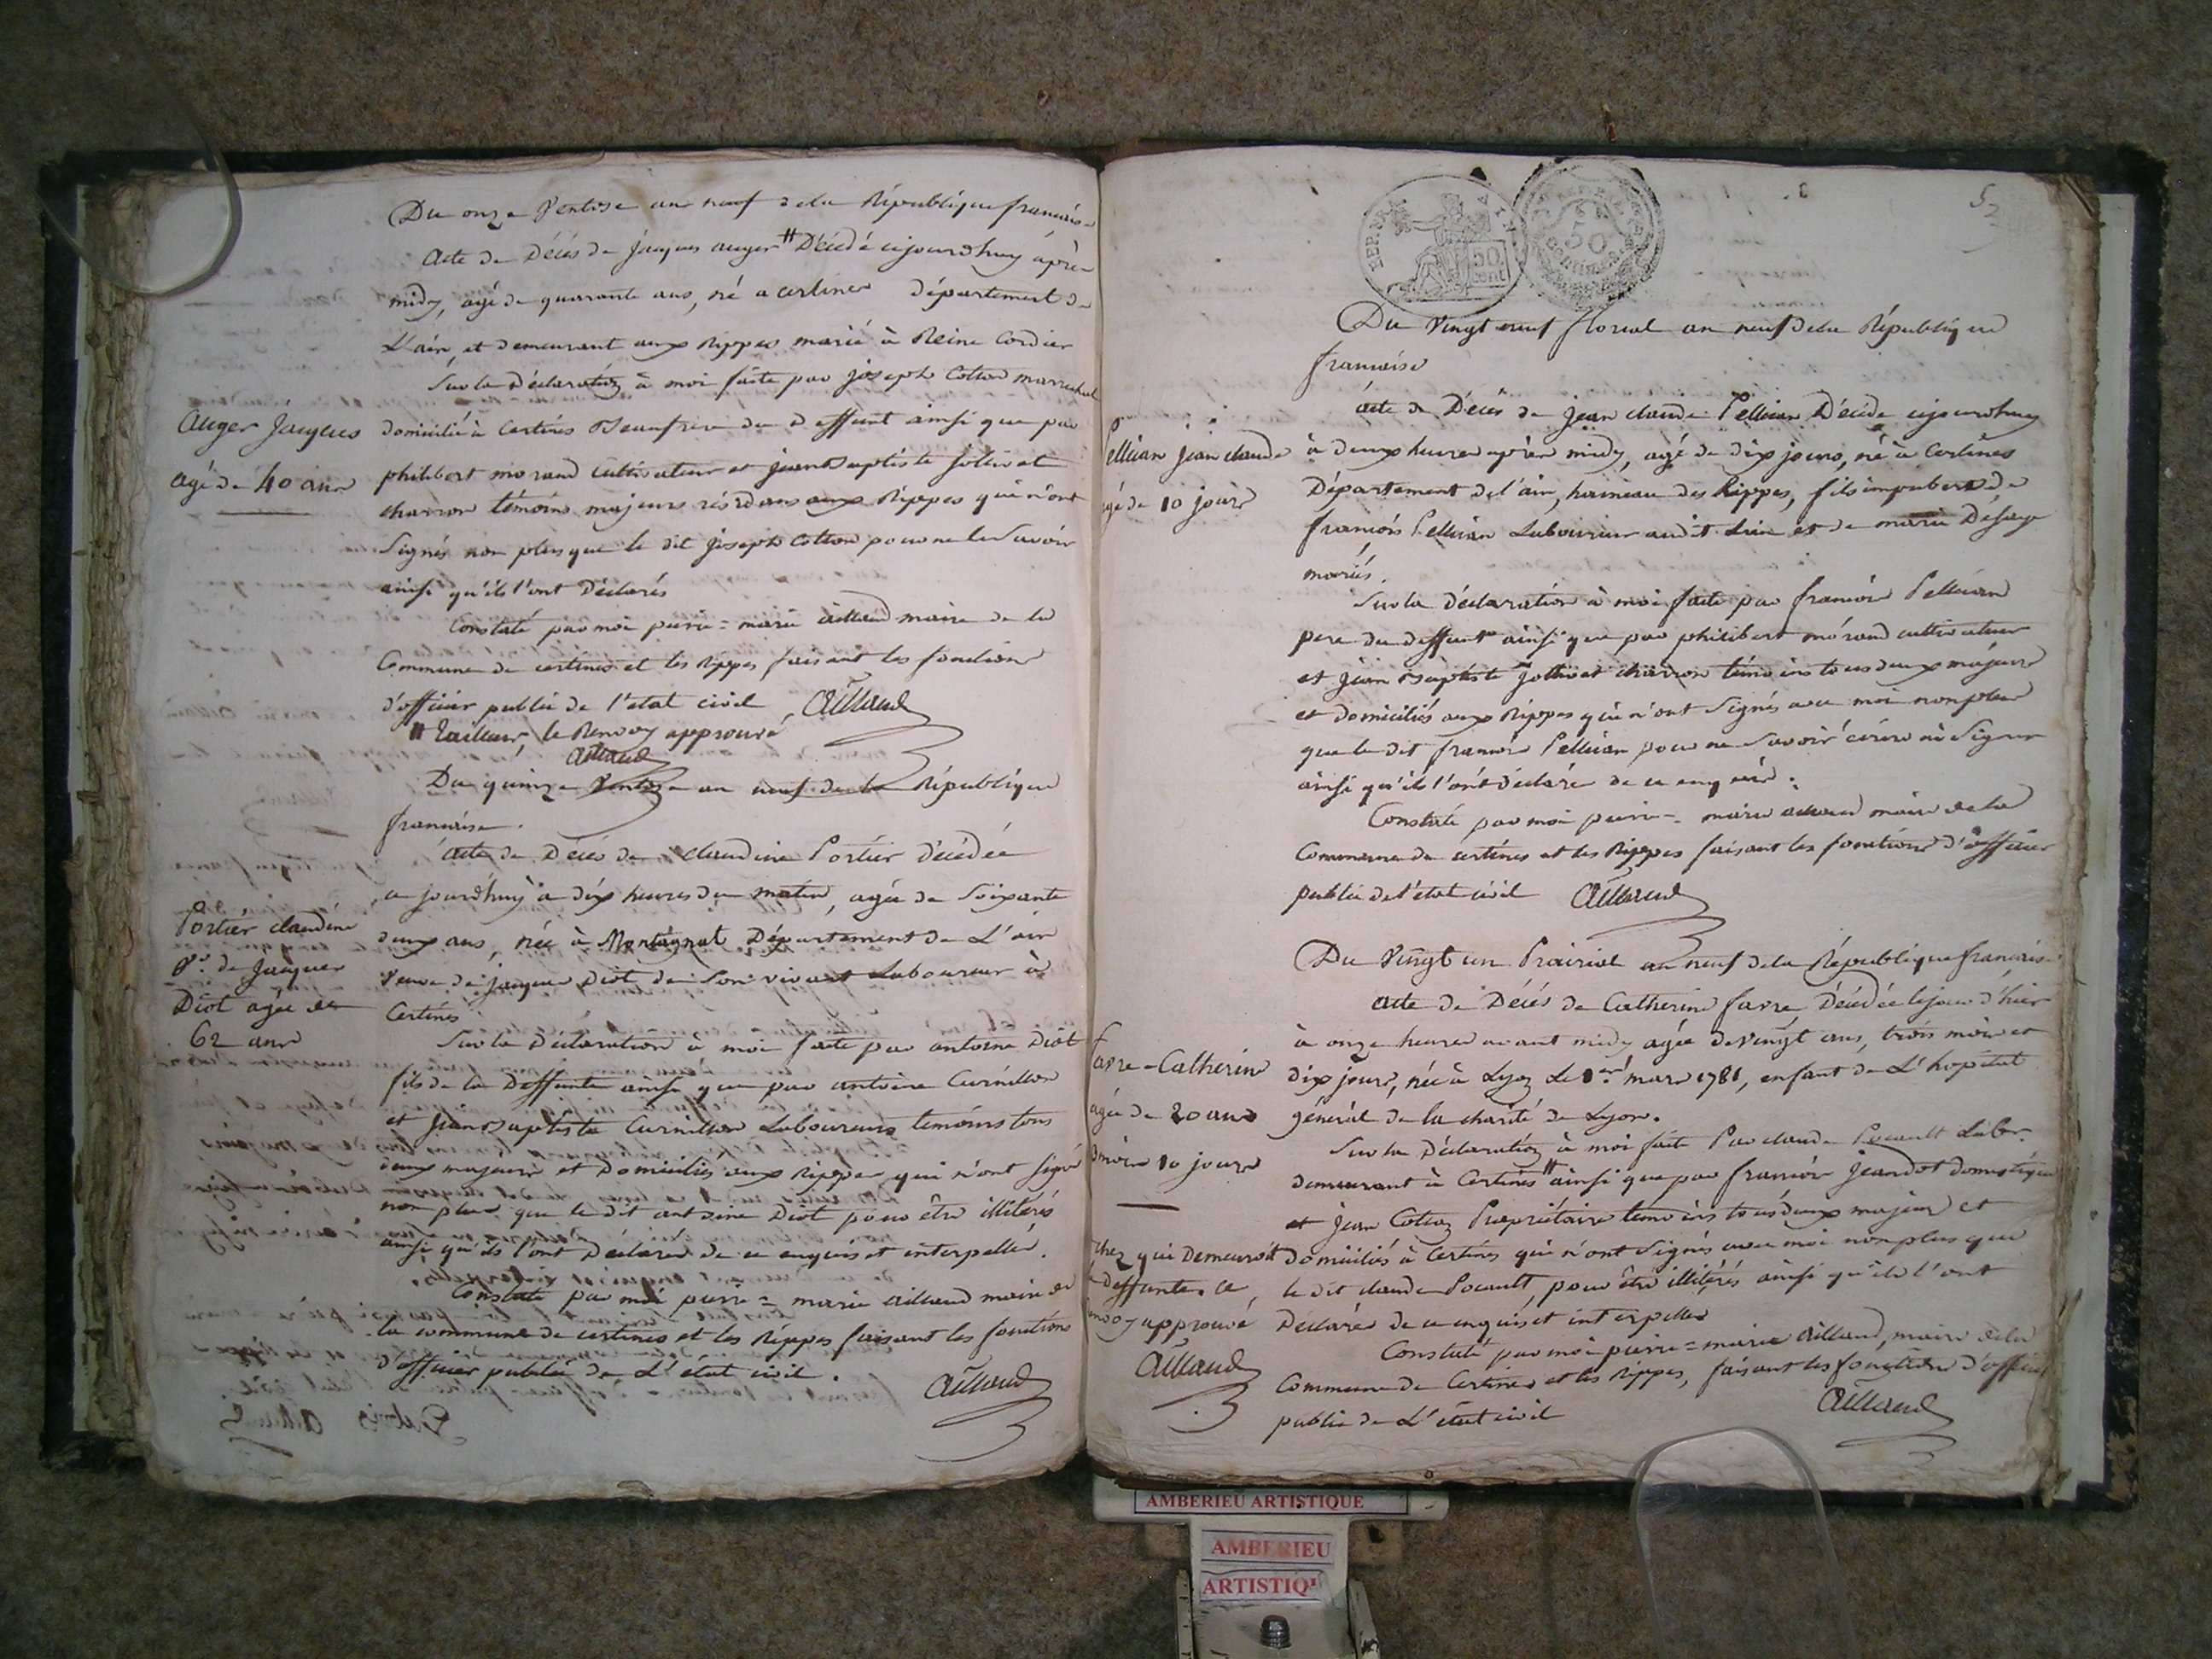 Du onze Ventose an neuf de la République francaise
Acte de Décès de Jacques auger # Décédé cejourdhuy après
midy, agé de quarante ans, né a certines département de
L'ain, et demeurant aux Rippes marié à Reine Cordier
Sur la Déclaration à moi faite par joseph Cotton marechal
Auger Jacques
agé de 40 ans
domicilié à Certines Beaufrere du deffunt ainsi que par
philibert morand cultivateur et jean Baptiste Jollivet
charron témoins majeurs résidans aux Rippes qui n'ont
Signés non plus que le dit Joseph Cotton pour ne le Savoir
ainsi qu'ils l'ont Déclarés
Constaté par moi pierre = marie aillaud maire de la
Commune de certines et les Rippes faisant les fonctions
d'officier public de l'etat civil Aillaud
# Tailleur, le Renvoy approuvé
Aillaud
Du quinze Ventose an neuf de la République
francaise.
acte de Décès de claudine Portier décédée
ce jourdhuy à dix heures du matin, agée de Soixante
Portier claudine
Ve. de Jacques
Diot agée de
62 ans
deux ans, née à Montagnat Département de L'ain
veuve de jacques Diot de Son vivant Laboureur à
Certines
Sur la Déclaration à moi faite par antoine Diot
fils de la Deffunte ainsi que par antoine Curnillon
et jean Baptiste Curnillon Laboureurs temoins tous
deux majeurs et Domiciliés aux Rippes qui n'ont signé
non plus que le dit antoine Diot pour être illitérés
ainsi qu'ils l'ont Déclarés de ce enquis et interpellés.
Constaté par moi pierre = marie aillaud maire de
la commune de certines et les Rippes faisant les fonctions
d'officier public de L'état civil.
Aillaud
REP. FRA.
50
cent
50
centimes
53
Du Vingt neuf floreal an neuf de la République
francaise
acte de Décès de jean claude Pelluian Décédé cejourdhuy
Pelluian jean claude
agé de 10 jours
à deux heures après midy, agé de dix jours, né à Certines
Département de l'ain, hameau des Rippes, fils impubere de
francois Pelluian Laboureur audit Lieu et de marie
mariés.
Sur la déclaration à moi faite par francois Pelluian
pere du deffunt ainsi que par philibert morand cultivateur
et jean Baptiste Jollivet charron témoins tous deux majeurs
et domiciliés aux Rippes qui n'ont Signés avec moi non plus
que le dit francois Pelluian pour ne Savoir écrire ni Signer
ainsi qu'ils l'ont déclaré de ce enquis.
Constaté par moi pierre = marie aillaud maire de la
Commune de certines et les Rippes faisant les fonctions d'officier
public de l'etat civil Aillaud
Du Vingt un Prairial an neuf de la République francaise
acte de Décès de Catherine favre Décédée le jour d'hier
à onze heures avant midy agée de vingt ans, trois mois et
favre = Catherine
agée de 20 ans
3 mois 10 jours
dix jours, née à Lyon Le 1er mars 1781, enfant de L'hopital
général de la charité de Lyon.
Sur la Déclaration à moi faite Par claude Pocault Labor.
demeurant à Certines # ainsi que par francois Jeandot domestique
et Jean Cottoz Propriétaire temoins tous deux majeurs et
chez qui Demeuroit
la deffunte. Ce
renvoy approuvé
Aillaud
domiciliés à Certines qui n'ont Signés avec moi non plus que
le dit claude Pocault, pour être illitérés ainsi qu'ils l'ont
Déclarés de ce enquis et interpellés
Constaté par moi pierre = marie Aillaud, maire de la
Commune de Certines et les Rippes, faisant les fonctions d'officier
public de L'état civil
Aillaud
AMBERIEU ARTISTIQUE
AMBERIEU
ARTISTIQU